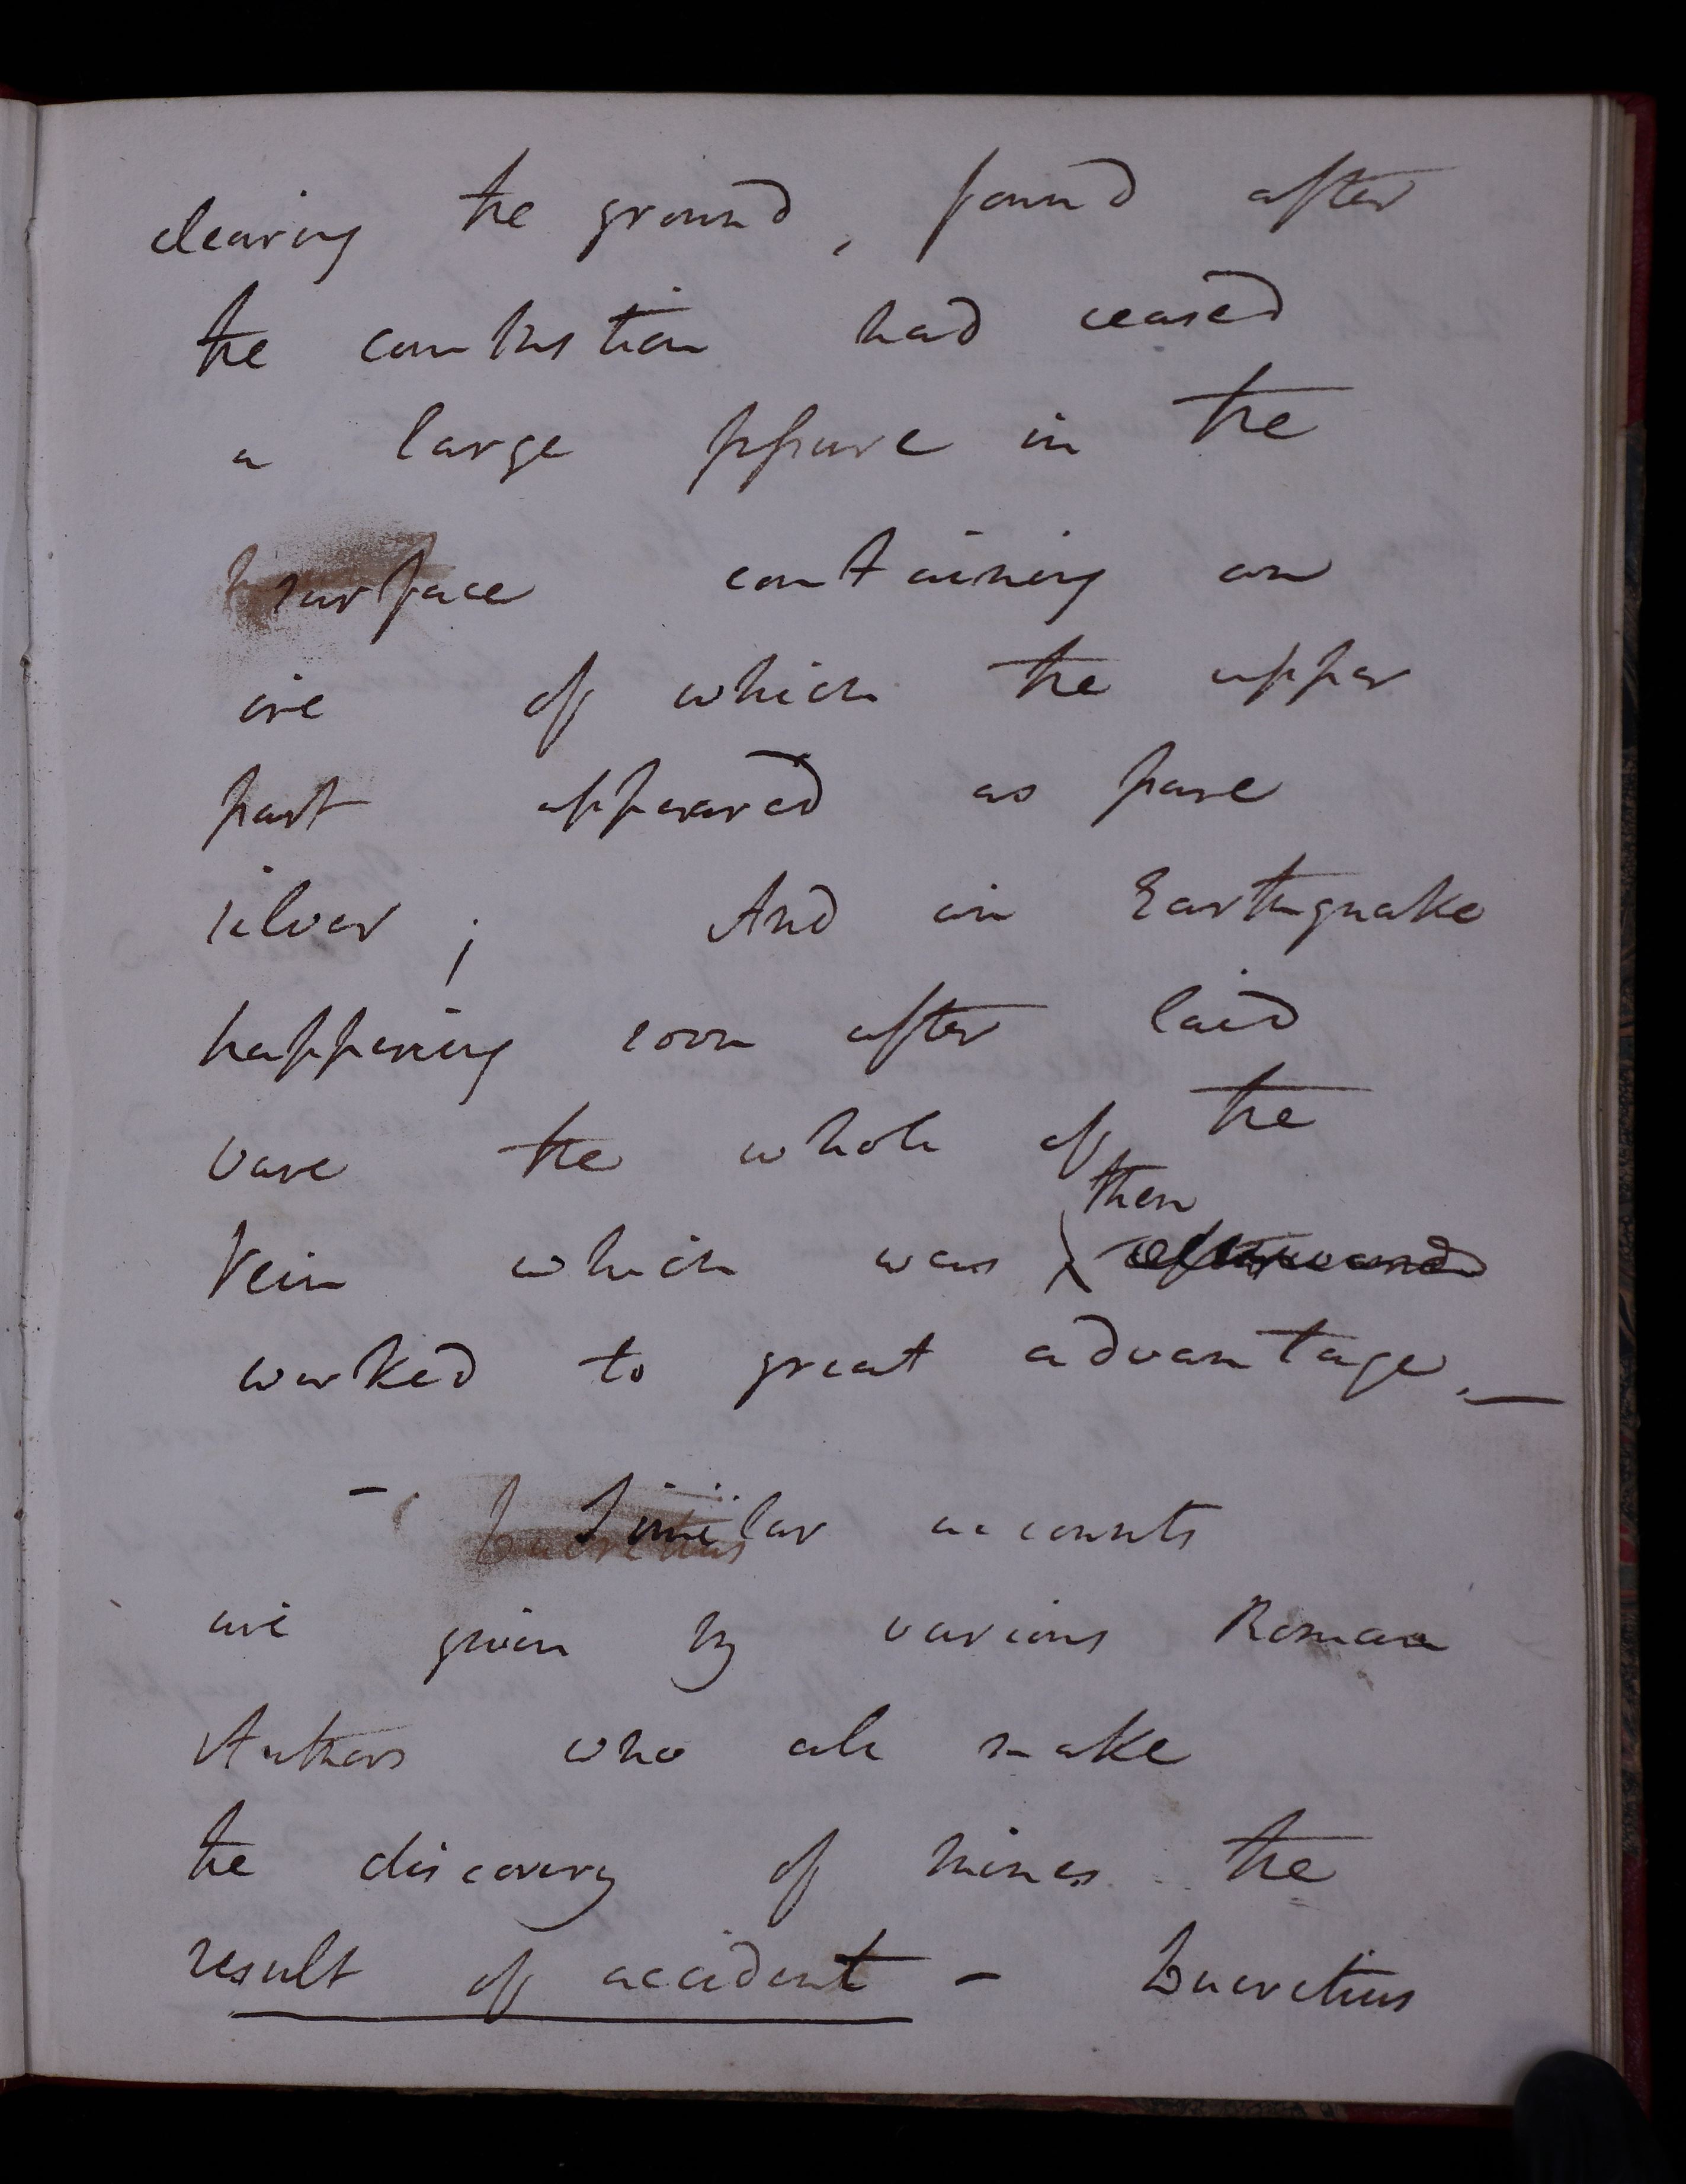 clearing the ground, found after
the combustion had ceased
a large fissure in the
surface containing an
ore of which the upper
part appeared as pure
silver; And an Earthquake
happening soon after laid
bare the whole of the
then
Vein which was afterward
worked to great advantage. —
– Similar accounts
are given by various Roman
Authors who all make
the discovery of mines the
result of accident – Lucretius